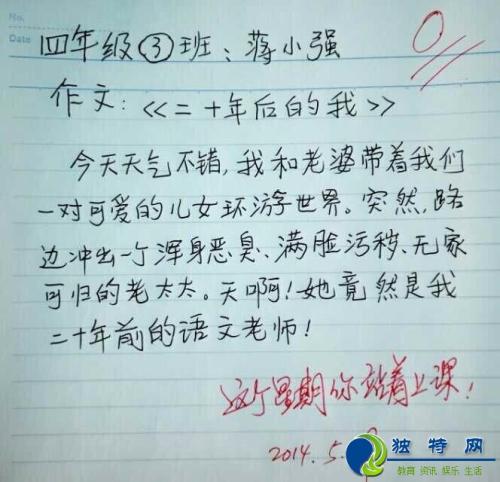 No.
Date
四年级③班:蒋小强
0
作文:《二十年后的我》
今天天气不错,我和老婆带着我们
一对可爱的儿女环游世界。突然,路
边冲出一个浑身恶臭、满脸污秽、无家
可归的老太太。天啊!她竟然是我
二十年前的语文老师!
这个星期你站着上课!
2014.5.
独特网
教育 资讯 娱乐 生活